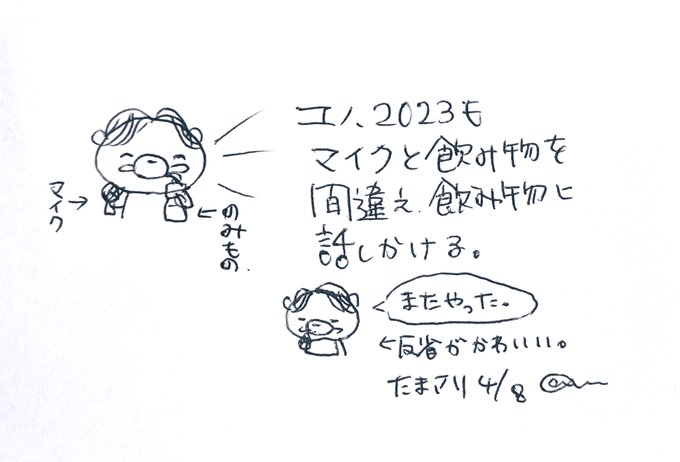 ユノ、2023も
マイクと飲み物を
間違え、飲み物に
話しかける。
マイク→
←のみもの。
またやった。
←反省がかわいい。
たまアリ 4/8